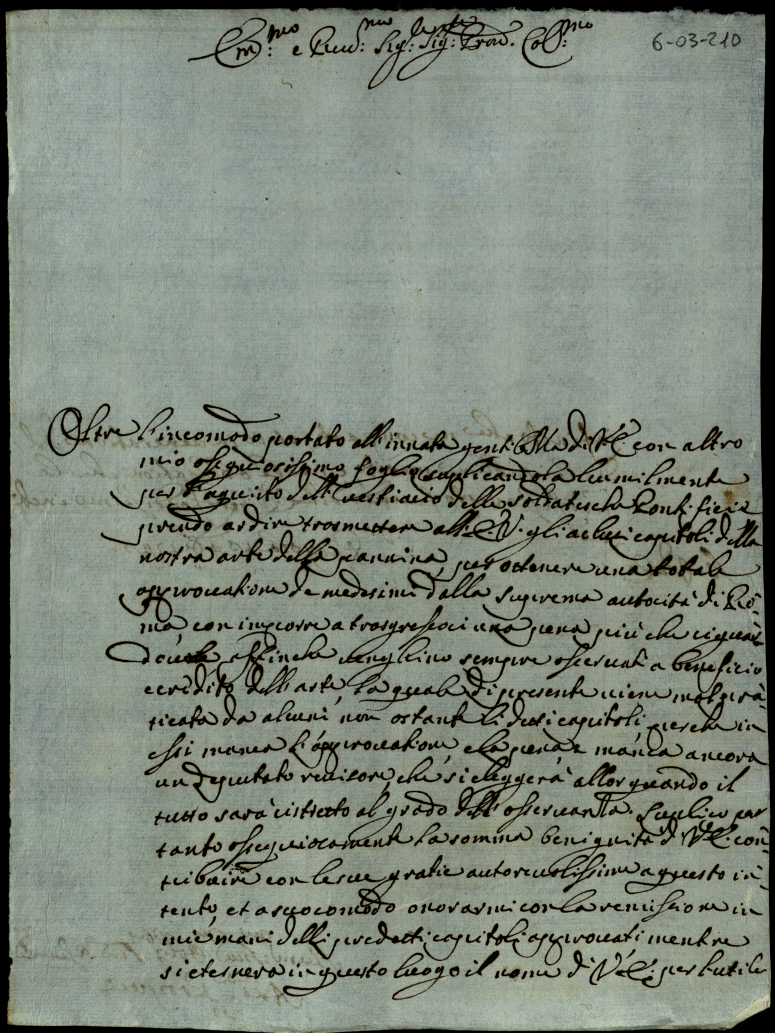 Em.mo e Reud.mo Sig.r Sig.r Pron. Col.mo
6-03-210
Oltre l'incomodo portato all'innata gentil.za di V.E. con altro
mio ossequiosissimo foglio suplicandola humilmente
per l'aquisto dell vestiario delle soldatesche Pontificie
prendo ardire trasmettere all' E.V. gli aclusi capitoli della
nostra arte della pannina, per ottenere una totale
approuatione de medesimi dalla suprema autorità di Ro=
ma, con imporre a trasgressori una pena più che riguar=
douole, affinche venghino sempre osseruati a beneficio
e credito dell'arte, la quale di presente viene mal pra=
ticata da alcuni, non ostante li detti capitoli, perche in
essi manca l'approuatione, e la pena, e manca ancora
un deputato reuisore, che si eleggerà allor quando il
tutto sarà ristretto al grado dell'osseruanza. Suplico per
tanto ossequiosamente la somma benignità di V.E. con=
tribuire con le sue gratie autoreuolissime a questo in=
tento, et a suo comodo onorarmi con la remissione in
mie mani delli predetti capitoli approuati mentre
si eternera in questo luogo il nome di V.E. per l'utile